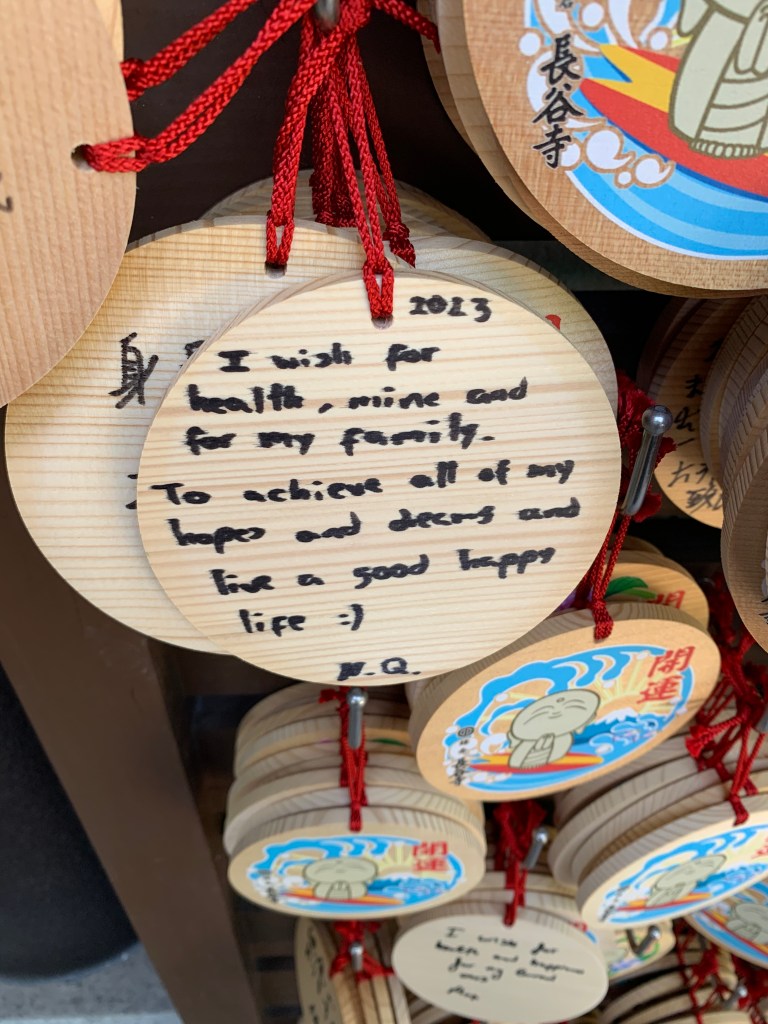 長谷寺
2023
I wish for
health, mine and
for my family.
To achieve all of my
hopes and dreams and
live a good happy
life :)
N.Q.
身
開運
長谷寺
開運
開運
I wish for
health and happiness
for my loved
ones